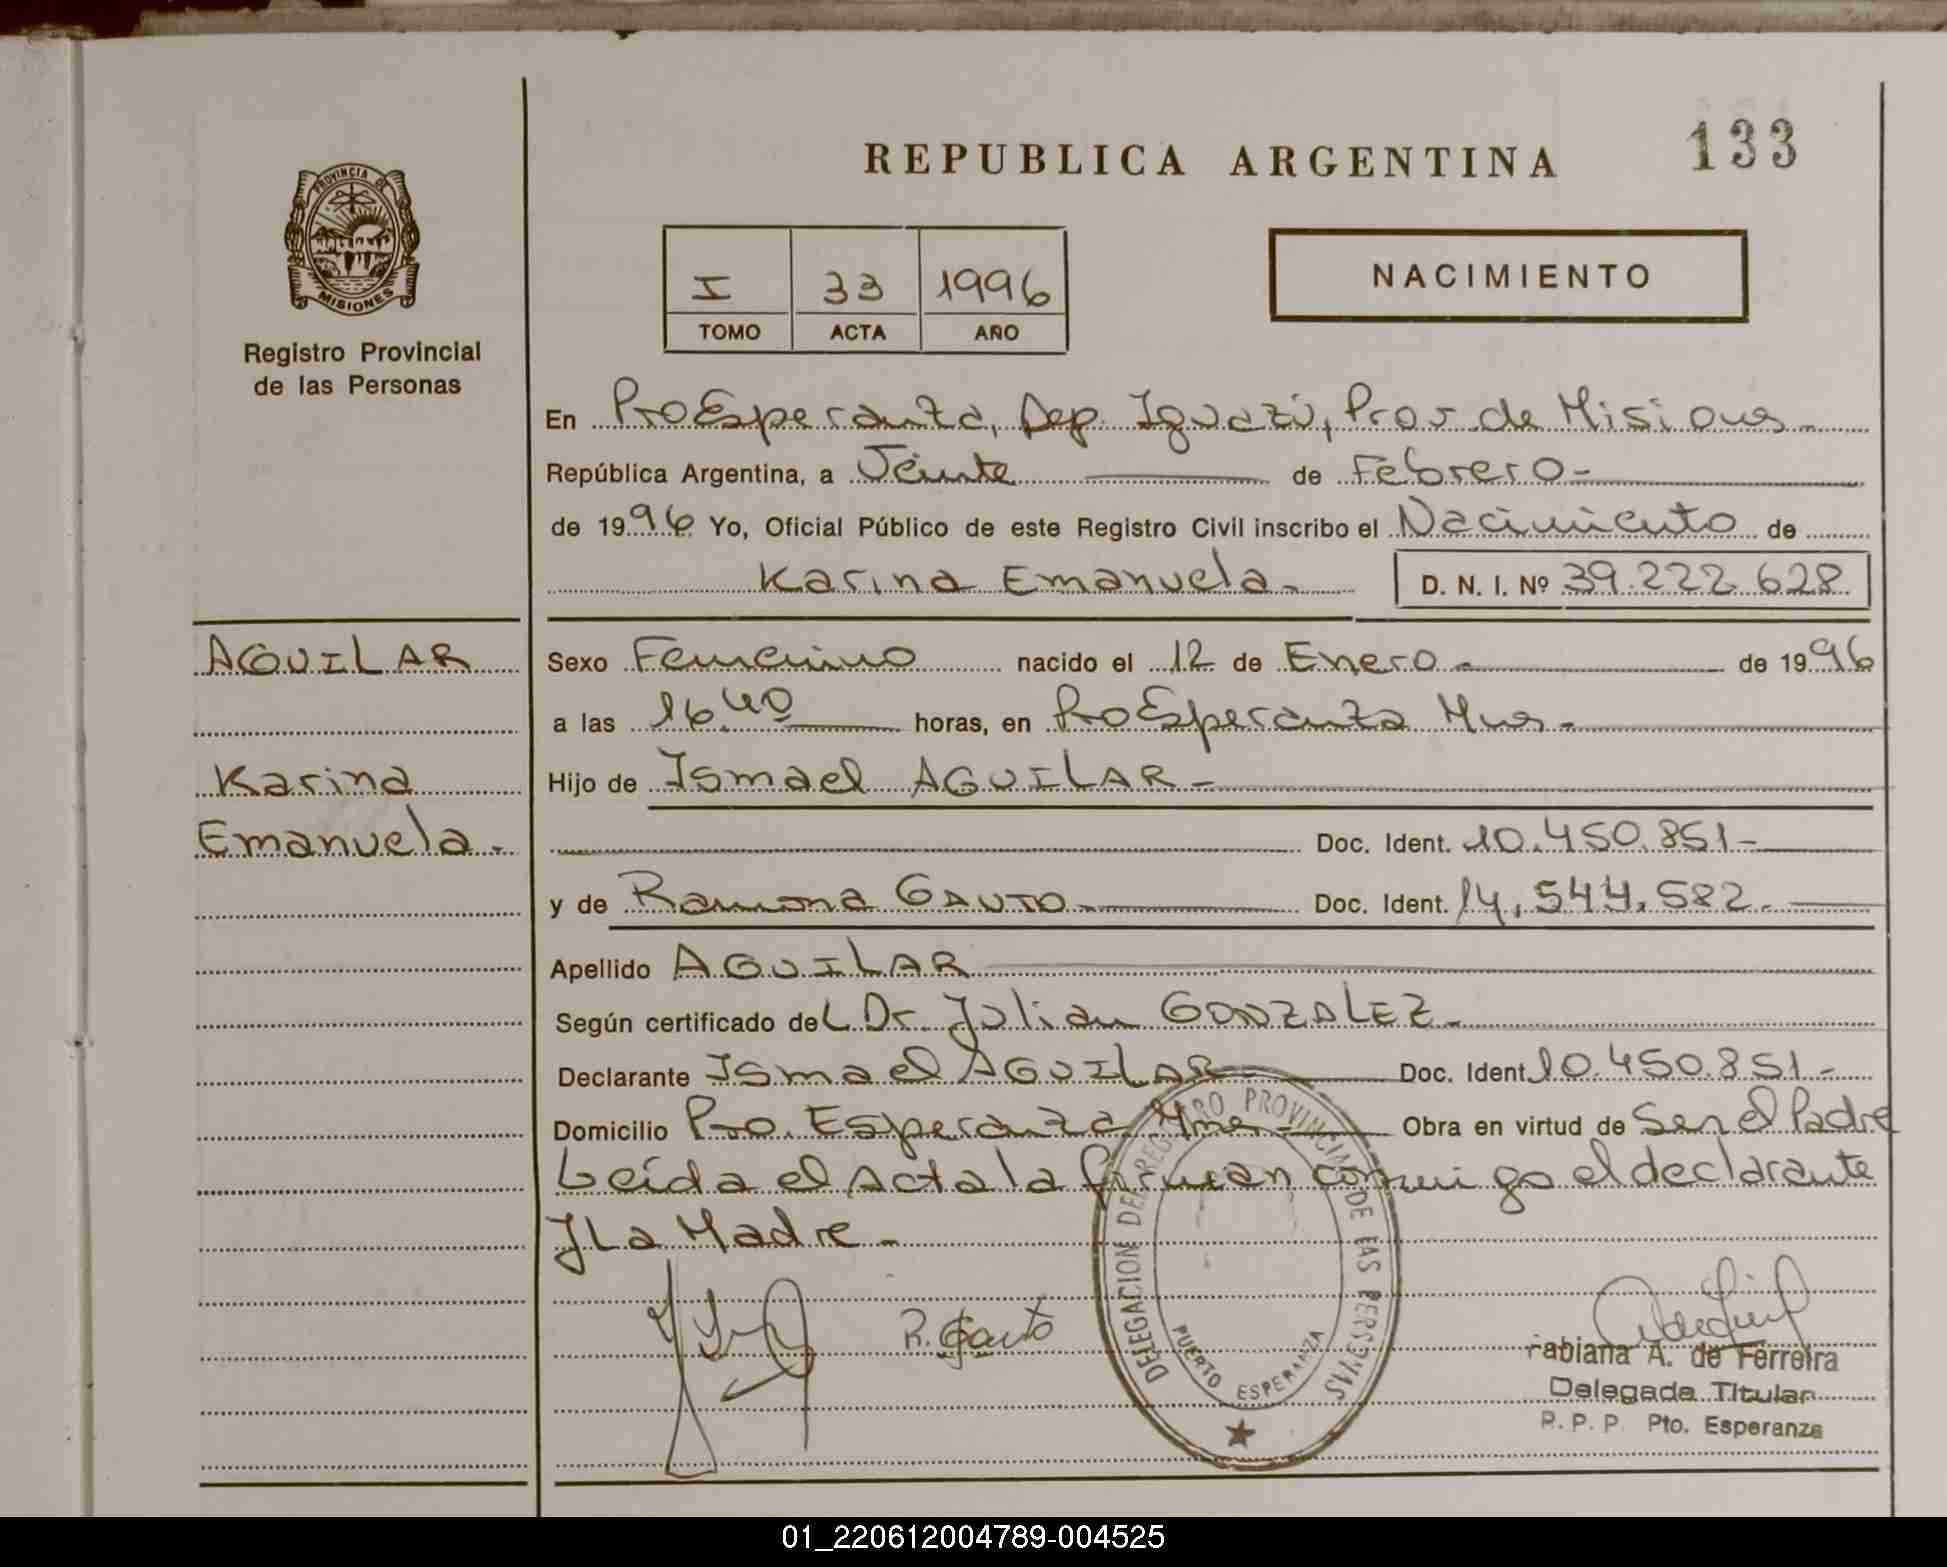 REPUBLICA ARGENTINA
133
PROVINCIA DE
MISIONES
Registro Provincial
de las Personas
I 33 1996
TOMO ACTA AÑO
NACIMIENTO
En Pto Esperanza, Dep. Iguazú, Prov de Misiones
República Argentina, a Veinte de Febrero
de 1996 Yo, Oficial Público de este Registro Civil inscribo el Nacimiento de
Karina Emanuela. D. N. I. Nº 39.222.628
AGUILAR
Karina
Emanuela.
Sexo Femenino nacido el 12 de Enero de 1996
a las 16.40 horas, en Pto Esperanza Mnes.
Hijo de Ismael AGUILAR
Doc. Ident. 10.450.851
y de Ramona GAUTO Doc. Ident. 14.544.582.
Apellido AGUILAR
Según certificado del Dr. Julian GONZALEZ.
Declarante Ismael AGUILAR Doc. Ident. 10.450.851
Domicilio Pto. Esperanza Mnes Obra en virtud de Ser el Padre
Leída el Acta la firman conmigo el declarante
y La Madre.
R. Gauto
DELEGACION DEL REGISTRO PROVINCIAL DE LAS PERSONAS
PUERTO ESPERANZA
Fabiana A. de Ferreira
Delegada Titular
R. P. P. Pto. Esperanza
01_220612004789-004525